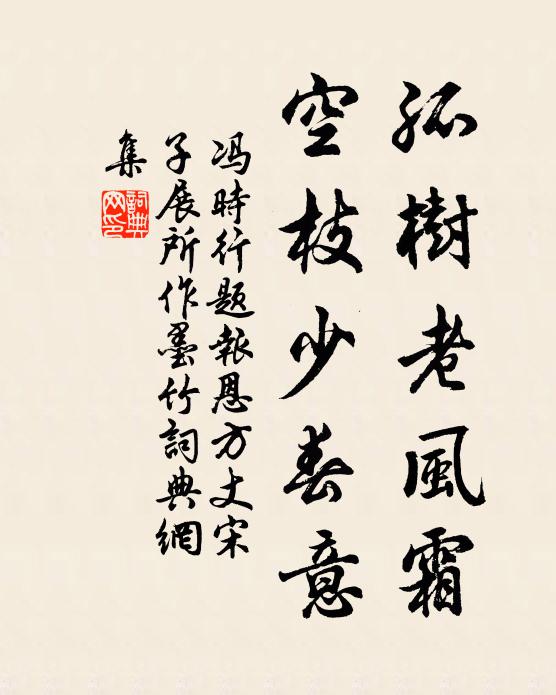 孤樹老風霜
空枝少春意
冯時行题報恩方丈宋
子展所作墨竹詞典網
集
詞典
网印